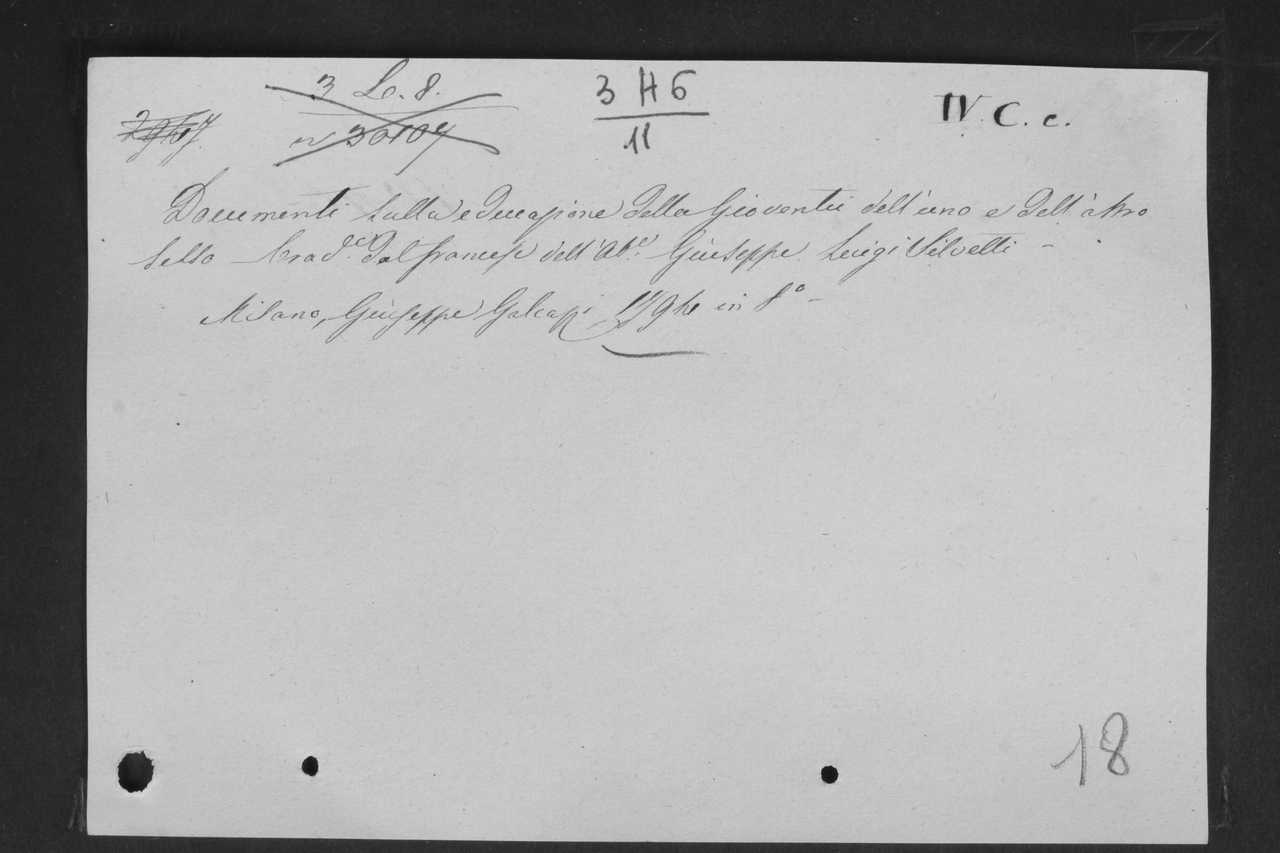 3 L. 8.
3 H 6
11
IV. C. c.
Documenti sulla educazione della Gioventù dell'uno e dell'altro
sesso trad.e dal francese dell'Ab.e Giuseppe Luigi
Milano, Giuseppe Galeazzi in 8°
18